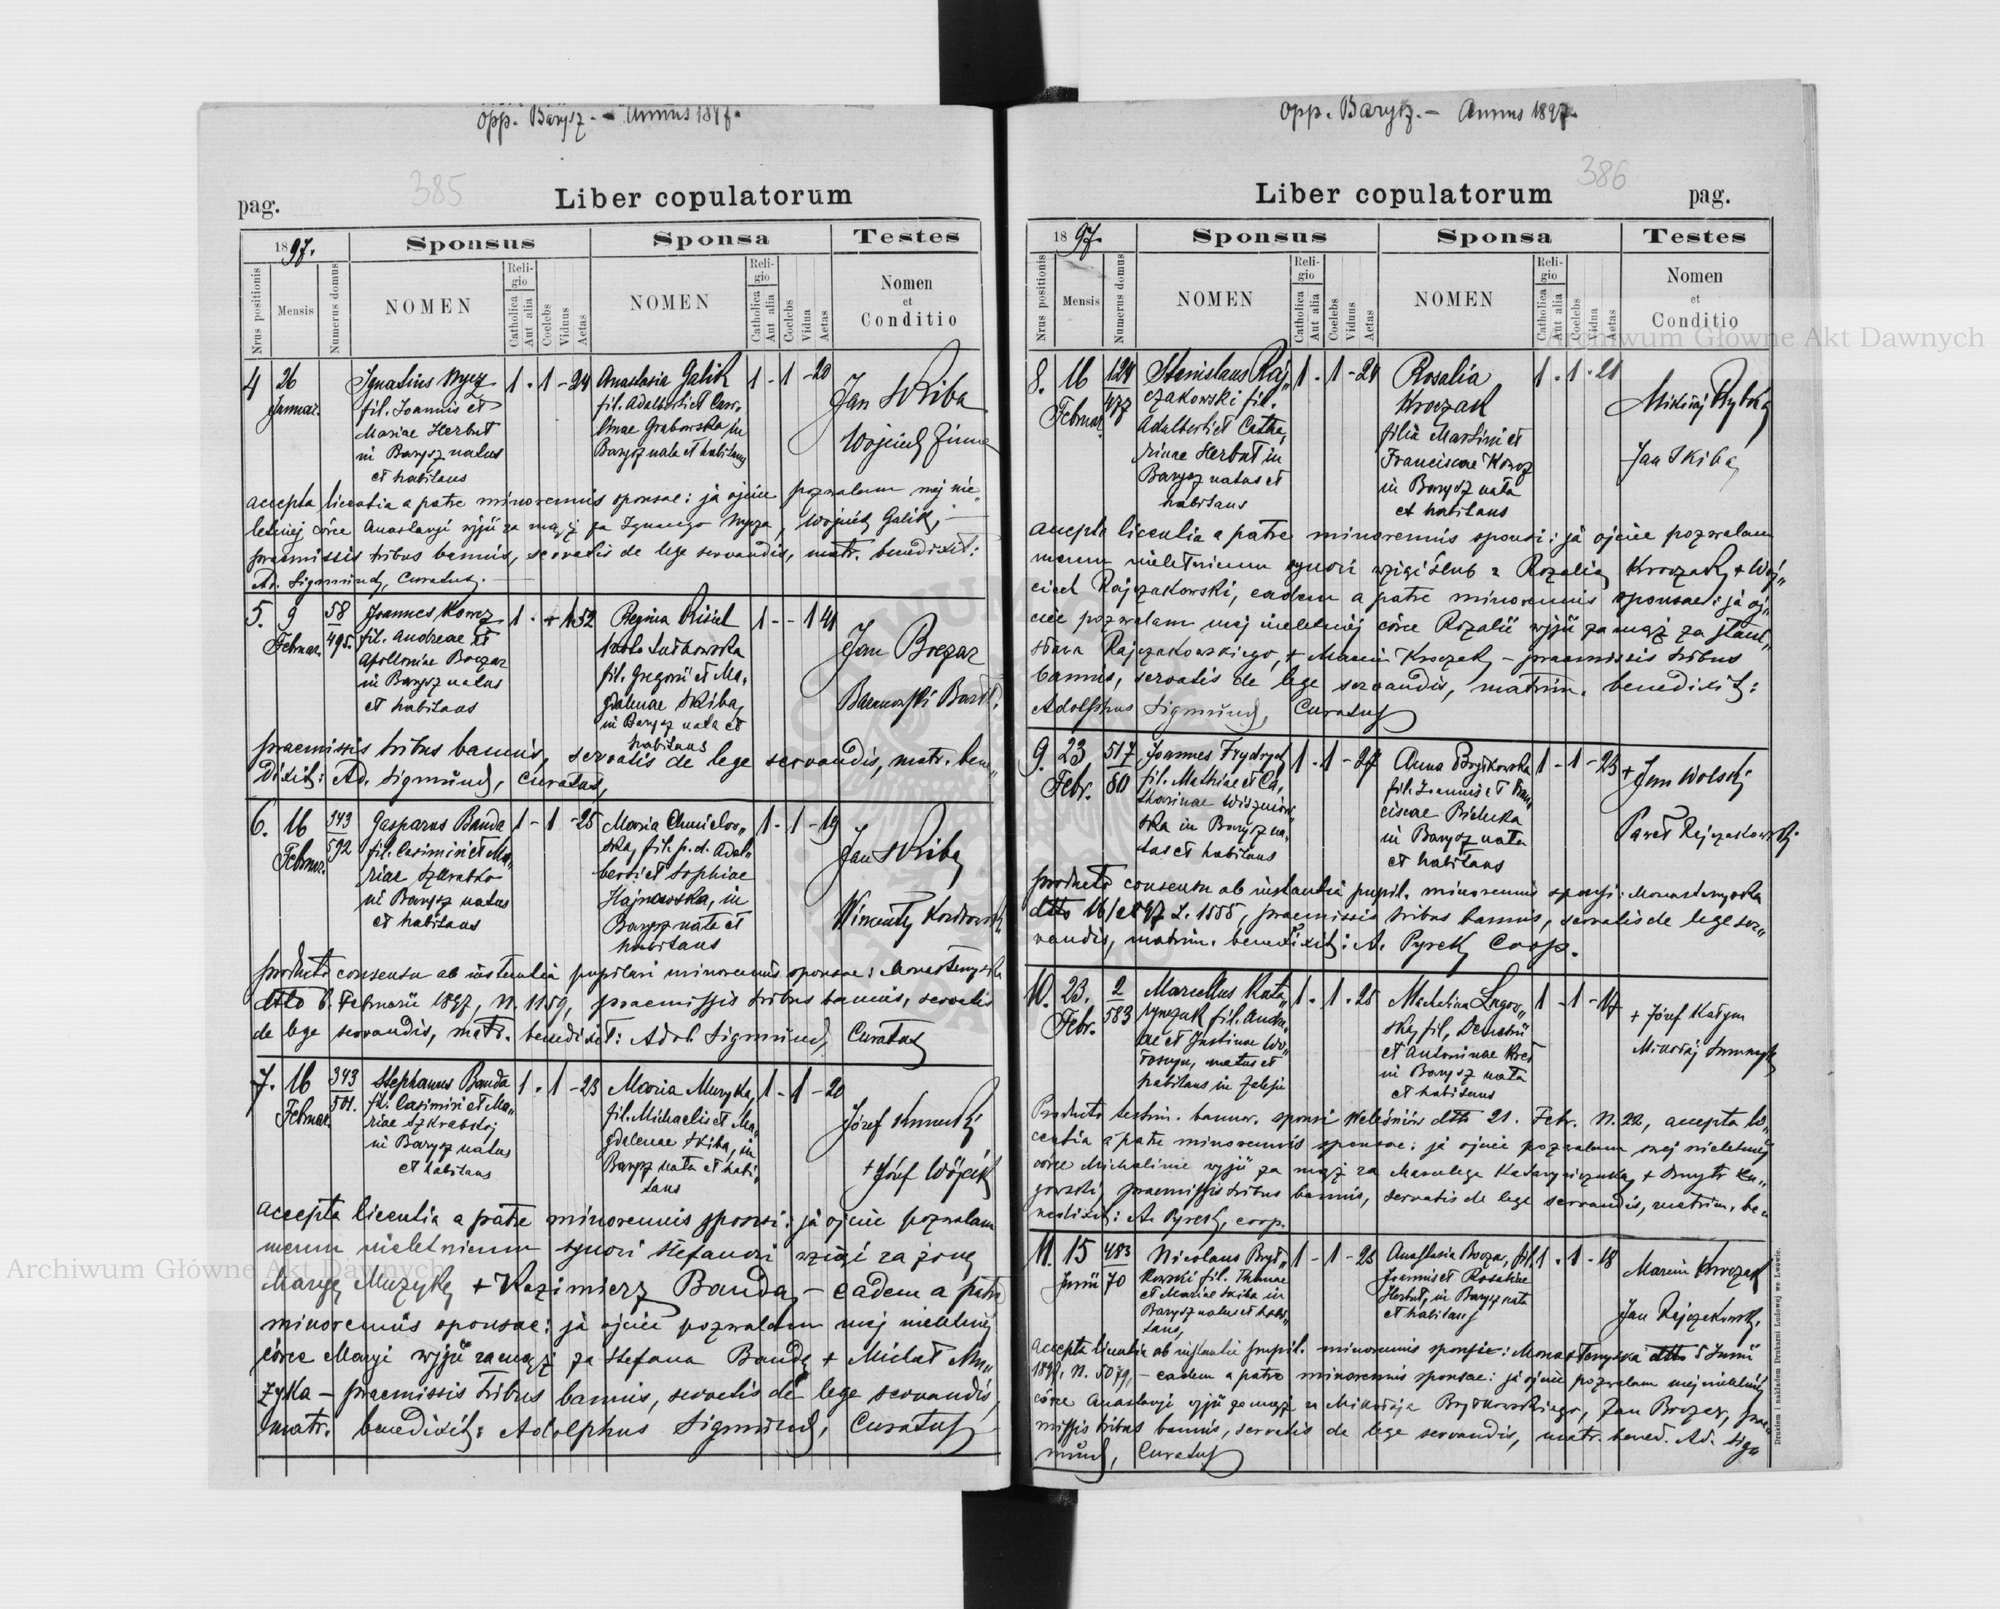 opp. Barysz. - Annus 1897.
385
pag.
Liber copulatorum
1897.
Sponsus
Sponsa
Testes
Nrus positionis
Mensis
Numerus domus
NOMEN
Religio
Catholica
Aut alia
Coelebs
Viduus
Aetas
NOMEN
Religio
Catholica
Aut alia
Coelebs
Vidua
Aetas
Nomen
et
Conditio
4 26 Januar.
Ignatius
fil. Joannis et
Mariae Herbut
in Barysz natus
et habitans
1 - 1 - 24
Anastasia Galik
fil. Adalberti et Caro-
linae Grabowska in
Barysz nata et habitans
1 - 1 - 20
Jan Skiba
Wojciech
accepta licentia a patre minorennis sponsae: ja ojciec pozwalam mej nie-
letniej córce Anastazyi wyjść za mąż za Ignacego, Wojciech Galik,
praemissis tribus bannis, servatis de lege servandis, matr. benedixit:
Ad. Sigmünd, Curatus.
5. 9 Februar. 58 495.
Joannes Korcz
fil. Andreae et
Apolloniae Boczar
in Barysz natus
et habitans
1 - + 1 52
Regina Kisiel
fil. Gregorii et Ma-
gdalenae Skiba,
in Barysz nata et
habitans
1 - - 1 41
Jan Boczar
Baranowski Bart.
praemissis tribus bannis, servatis de lege servandis, matr. bene-
dixit: Ad. Sigmünd, Curatus,
6. 16 Februar. 343 592
Gasparus Banda
fil. Casimiri et Ma-
riae
in Barysz natus
et habitans
1 - 1 - 25
Maria Chmielow-
ska, fil. p. d. Adal-
berti et Sophiae
Hajnowska, in
Barysz nata et
habitans
1 - 1 - 19
Jan Skiba
Wincenty
producto consensu ab instantia pupilari minorennis sponsae: Monasterzyska
dtto 6. Februarii 1897, N. 1159, praemissis tribus bannis, servatis
de lege servandis, matr. benedixit: Adol. Sigmünd, Curatus
7. 16 Februar. 343 501.
Stephanus Banda
fil. Casimiri et Ma-
riae Szkrabskoj
in Barysz natus
et habitans
1 - 1 - 23
Maria Muzyka,
fil. Michaelis et Ma-
gdalenae Skiba, in
Barysz nata et habi-
tans
1 - 1 - 20
Józef
+ Józef Wójcik
accepta licentia a patre minorennis sponsi: ja ojciec pozwalam
memu nieletniemu synowi Stefanowi wziąć za żonę
Maryę Muzykę + Kazimierz Banda, - eadem a patre
minorennis sponsae: ja ojciec pozwalam mej nieletniej
córce Maryi wyjść za mąż za Stefana Banda + Michał Mu-
zyka - praemissis tribus bannis, servatis de lege servandis,
matr. benedixit: Adolphus Sigmünd, Curatus
opp. Barysz. - Annus 1897.
386
Liber copulatorum
pag.
1897.
Sponsus
Sponsa
Testes
Nrus positionis
Mensis
Numerus domus
NOMEN
Religio
Catholica
Aut alia
Coelebs
Viduus
Aetas
NOMEN
Religio
Catholica
Aut alia
Coelebs
Vidua
Aetas
Nomen
et
Conditio
8. 16 Februar. 124 477
Stanislaus Raj-
czakowski fil.
Adalberti et Catha-
rinae Herbut in
Barysz natus et
habitans
1 - 1 - 24
Rosalia
Kroczak
filia Martini et
Franciscae Korcz
in Barysz nata
et habitans
1 - 1 - 21
Mikołaj Rybka
Jan Skiba
accepta licentia a patre minorennis sponsi: ja ojciec pozwalam
memu nieletniemu synowi wziąć ślub z Rozalią Kroczak, + Woj-
ciech Rajczakowski, eadem a patre minorennis sponsae: ja oj-
ciec pozwalam mej nieletniej córce Rozalii wyjść za mąż za Stani-
sława Rajczakowskiego, + Marcin Kroczak - praemissis tribus
bannis, servatis de lege servandis, matrim. benedixit:
Adolphus Sigmünd, Curatus
9. 23 Febr. 517 80
Joannes Frydrych
fil. Mathiae et Ca-
tharinae Wiszniow-
ska in Barysz na-
tus et habitans
1 - 1 - 27
Anna Brytkowska
fil. Joannis et Fran-
ciscae
in Barysz nata
et habitans
1 - 1 - 23
+ Jan Wolski
Paweł Rajczakowski
producto consensu ab instantia pupil. minorennis sponsi: Monasterzyska
dtto 16/2 897 L. 1555, praemissis tribus bannis, servatis de lege ser-
vandis, matrim. benedixit: A. Pyrek, Coop.
10. 23. Febr. 2 583
Marcellus Kata-
rynczuk fil. Andre-
ae et Justinae Wo-
łoszyn, natus et
habitans in Zalesie
1 - 1 - 25
Michalina Lagow-
ska, fil. Demetrii
et Antoninae
in Barysz nata
et habitans
1 - 1 - 17
+ Józef Kałyn
Mikołaj
Producto testim. bannor. sponsi Weleśniów dtto 21. Febr. N. 22, accepta li-
centia a patre minorennis sponsae: ja ojciec pozwalam swej nieletniej
córce Michalinie wyjść za mąż za Marcelego + Dmytr La-
gowski, praemissis tribus bannis, servatis de lege servandis, matrim. be-
nedixit: A. Pyrek, coop.
11. 15 Junii 483 70
Nicolaus Bryt-
kowski fil. Thomae
et Mariae Skiba in
Barysz natus et habi-
tans,
1 - 1 - 23
Anastasia Boczar, fil.
Joannis et Rosaliae
Herbut, in Barysz nata
et habitans
1 - 1 - 18
Marcin Kroczak
Jan Rajczakowski
accepta licentia ab instantia pupil. minorennis sponsi: Monasterzyska dtto 5 Junii
1897, N. 5079, - eadem a patre minorennis sponsae: ja ojciec pozwalam mej nieletniej
córce Anastazyi wyjść za mąż za Mikołaja Brytkowskiego, Jan Boczar, prae-
missis tribus bannis, servatis de lege servandis, matr. bened. Ad. Sig-
münd, Curatus
Drukiem i nakładem Drukarni Ludowej we Lwowie.
Archiwum Główne Akt Dawnych
Archiwum Główne Akt Dawnych